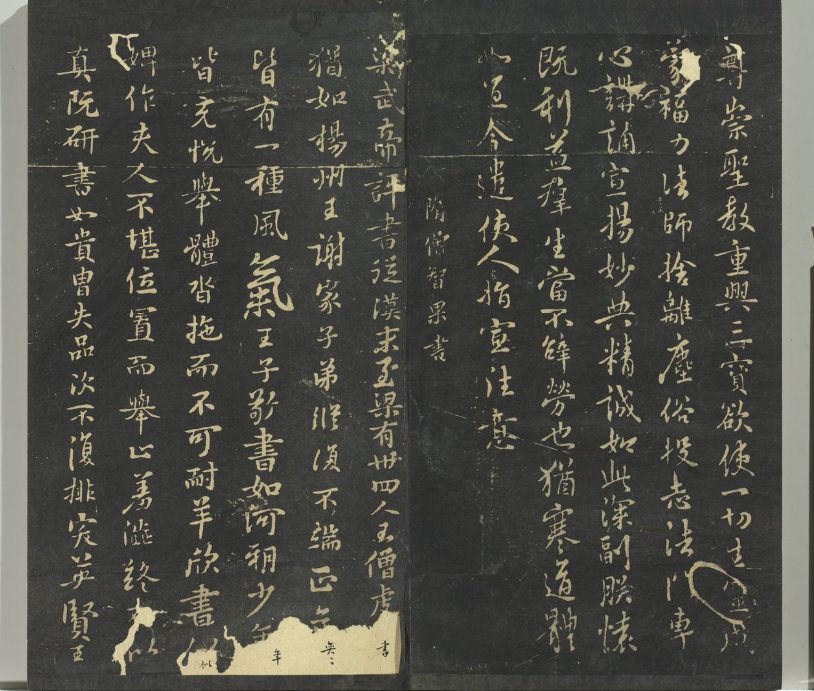 尊崇聖教重興三寶欲使一切生靈咸
蒙福力法師捨離塵俗投志法門專
心講誦宣揚妙典精誠如此深副朕懷
既利益羣生當不辭勞也猶寒道體
如宜今遣使人指宣往意
隋僧智果書
梁武帝評書從漢末至梁有卌四人王僧虔
猶如楊州王謝家子弟縱復不端正
皆有一種風氣王子敬書如河朔少年
皆充悅舉體沓拖而不可耐羊欣書似
婢作夫人不堪位置而舉止羞澁終
真阮研書如貴冑失品次不復排突英賢王
書
奕〻
年
似